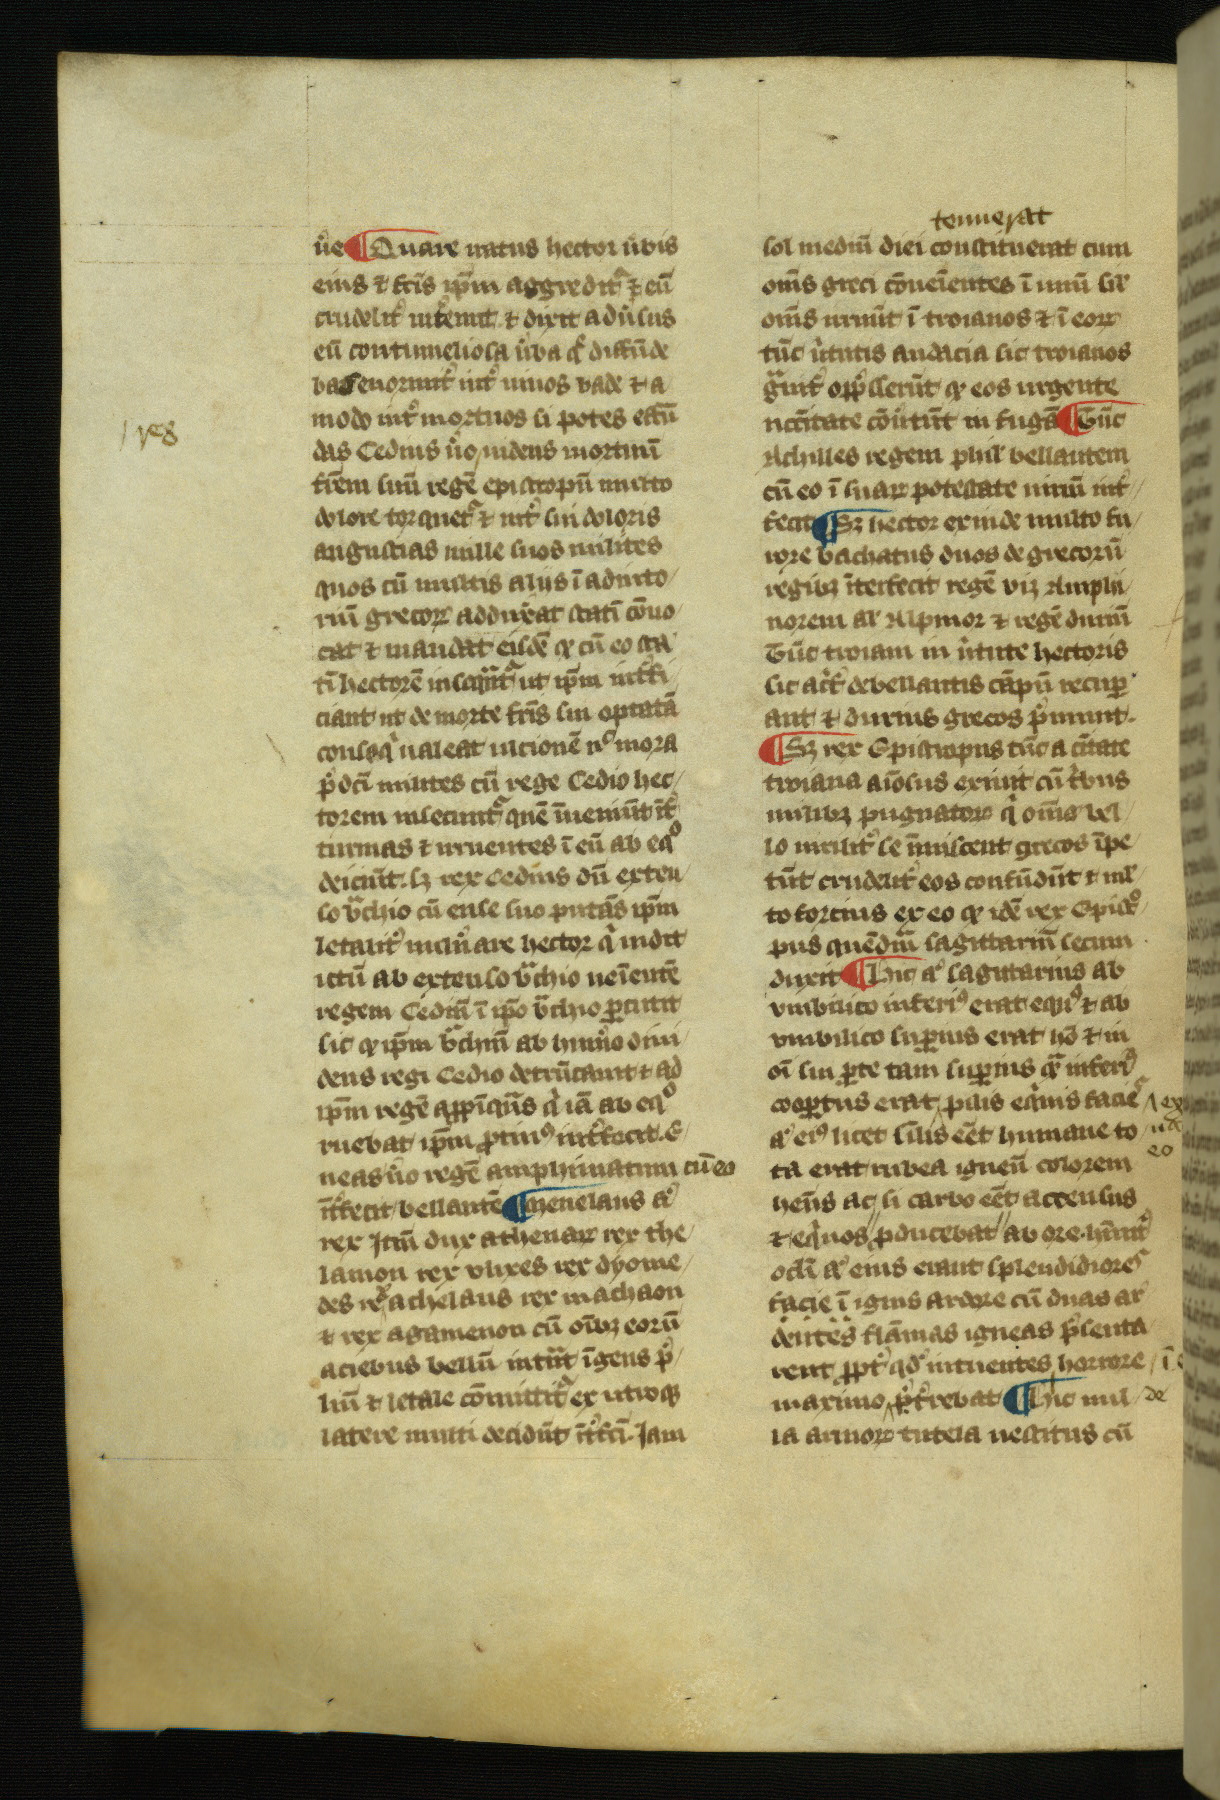 u͛e ¶ Quare iratus hector ūbis
eius ⁊ fcīs ip̄m aggredit᷑ ⁊ eū
crudelit͛ int͛emit ⁊ dixit adūsus
eū contumeliosa ūba q̄ diffūde
bas enormit͛ int͛ uiuos vade ⁊ a
modo int͛ mortuos si potes effū
das Cedius u͛o uidens mortuū
fr̄em suū regē epistropū multo
dolore torquet᷑ ⁊ int͛ sui doloris
angustias mille suos milites
quos cū multis aliis ī adiuto
riū grecoꝝ adduxerat statī cōuo
cat ⁊ mandat eisdē ꝙ cū eo sta
tī hectorē insequāt᷑ ut ip̄m int͛fi
ciant ut de morte fr̄is sui optatā
conseq̄ ualeat ulcionē n͛ mora
p̄dcī milites cū rege Cedio hec
torem insecunt᷑ quē īueniūt īt͛
turmas ⁊ irruentes ī eū ab eqͦ
deiciūt. sꝫ rex Cedius dū exten
so b͛chio cū ense suo putās ip̄m
letalit͛ uuln͛are hector q̄ uidit
ictū ab extenso b͛chio ueīentē
regem Cediū ī ip̄o b͛chio ꝑcutit
sic ꝙ ip̄m b͛chiū ab hum͛o diui
dens regi Cedio detrūcauit ⁊ ad
ip̄m regē app̄īqūs q̄ iā ab eqͦ
ruebat ip̄m ꝓtin᷒ int͛fecit. E
neas u͛o regē amphimatum cū eo
īt͛fecit bellantē ¶ Menelaus aͦ
rex Itm̄ dux athenaꝝ rex the
lamon rex vlixes rex dyome
des rex achelaus rex machaon
⁊ rex agamenon cū oībꝫ eorū
aciebus bellū intr̄āt īgens p̄
liū ⁊ letale cōmittit᷑ ex utroqꝫ
latere multi decidūt īt͛fcī. Iam
/ reg
tenuerat
sol mediū diei constituerat cum
om̄s greci cōueīentes ī unū sil͛
om̄s irruūt ī troianos ⁊ ī eoꝝ
tūc u͛tutis audacia sic troianos
g̃uit͛ opp̄sserūt ꝙ eos urgente
nc̄citate cōu͛tūt in fugā ¶ Tūc
Achilles regem phil͛ bellantem
cū eo ī suaꝝ potestate uiriū int͛
fecit ¶ Sꝫ hector exinde multo fu
rore bachatus duos de grecorū
regibꝫ īterfecit regē viꝫ Amphi
norem al͛ Alpinor ⁊ regē duriū
Tūc troiani in u͛tute hectoris
sic acr͛it͛ debellantis cāpū recuꝑ
ant ⁊ durius grecos p̄munt.
¶ Sꝫ rex Epistropus tūc a ciūtate
troiana aīosus exiuit cū t͛bus
milibꝫ pugnatoꝝ q̄ om̄s bel
lo uirilit͛ se īmiscent grecos īpe
tūt crudelit͛ eos confūdūt ⁊ ml͛
to forcius ex eo ꝙ idē rex Epistͦ
pus quēdm̄ sagittariū secum
duxit ¶ Hic aͦ sagittarius ab
vmbilico inferi᷒ erat equ᷒ ⁊ ab
vmbilico suꝑius erat hō ⁊ in
oī sui ꝑte tam suꝑius q̃ inferi᷒
cooꝑtus erat pilis eq̄nis facie᷒
aͦ ei᷒ licet sil̄is eēt humane to
ta erat rubea igneū colorem
hēns ac si carbo eēt accensus
⁊ eq̄uos ꝓducebat ab ore hīnit᷒
oclī aͦ eius erant splendidiores
facie ī ignis ardore cū duas ar
dentes flāmas igneas p̄senta
rent ꝓpt͛ qd̄ intuentes horrore
maximo p̄t͛rebat ¶ Hic nul
la armoꝝ tutela uestitus cū
/ ex
ua
eo
/ ī
de